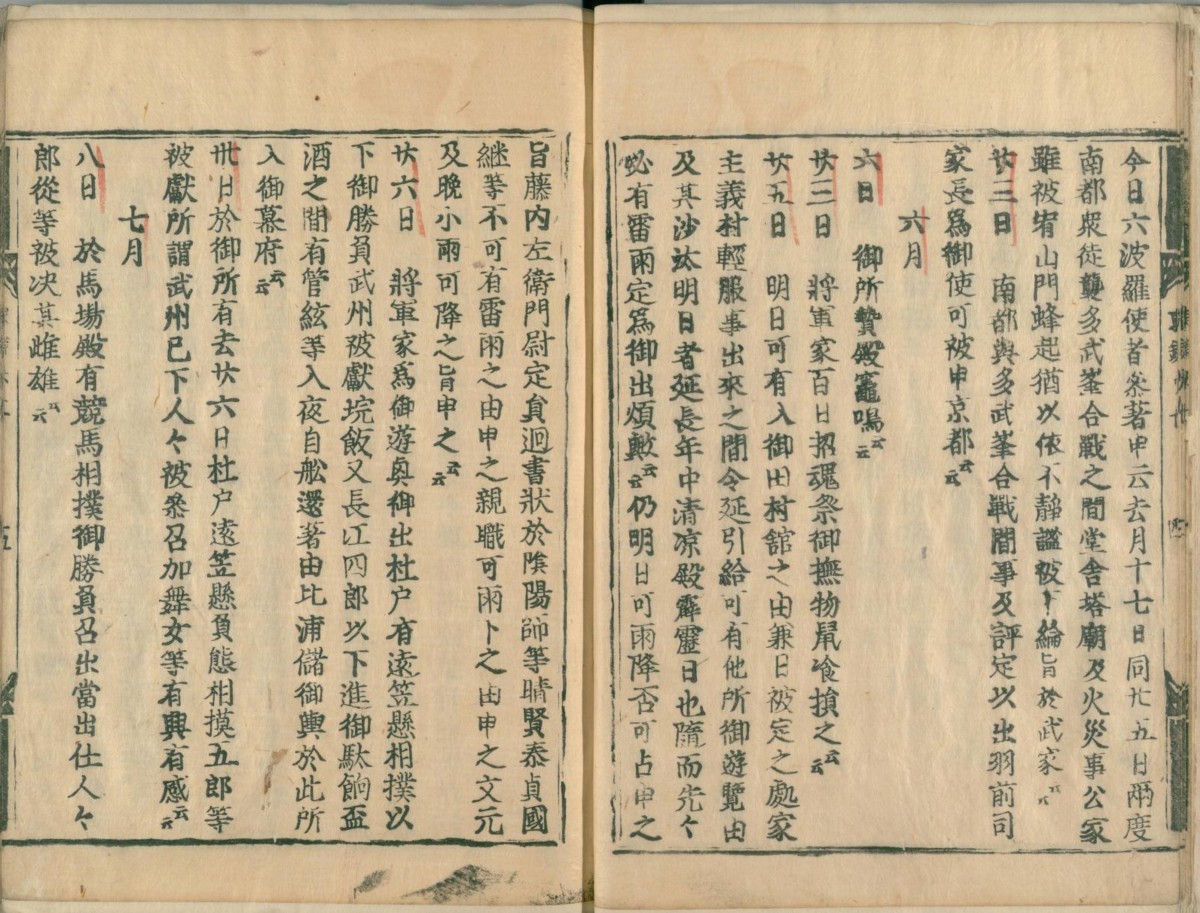 今日六波羅使者參著申云去月十七日同廿五日兩度
南都衆徒襲多武峯合戰之間堂舎塔廟及火災事公家
雖被宥山門蜂起猶以依不靜謐被下綸旨於武家云云
廿三日　南都與多武峯合戰間事及評定以出羽前司
家長爲御使可被申京都云云
六月
六日　御所贄殿竈鳴云云
廿三日　將軍家百日招魂祭御撫物鼠喰損之云云
廿五日　明日可有入御田村舘之由兼日被定之處家
主義村輕服事出來之間令延引給可有他所御遊覽由
及其沙汰明日者延長年中清凉殿霹靂日也隨而先々
必有雷雨定爲御出煩歟云云仍明日可雨降否可占申之
旨藤内左衛門尉定貟迴書狀於陰陽師等晴賢泰貞國
継等不可有雷雨之由申之親職可雨卜之由申之文元
及晚小雨可降之旨申之云云
廿六日　將軍家爲御遊奐御出杜戸有遠笠懸相撲以
下御勝負武州被獻垸飯又長江四郎以下進御駄餉盃
酒之間有管絃等入夜自舩還著由比浦儲御輿於此所
入御幕府云云
卅日於御所有去廿六日杜戸遠笠懸負態相摸五郎等
被獻所謂武州已下人々被參召加舞女等有興有感云云
七月
八日　於馬場殿有競馬相撲御勝負召出當出仕人々
郎從等被决其雌雄云云